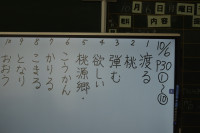 月 日 曜日
内容
10/6
P30
①
〜
⑩
1 渡る
2 桃
3 弾む
4 欲しい
5 桃源郷
6 こうかん
7 かりる
8 こまる
9 となり
10 おおう